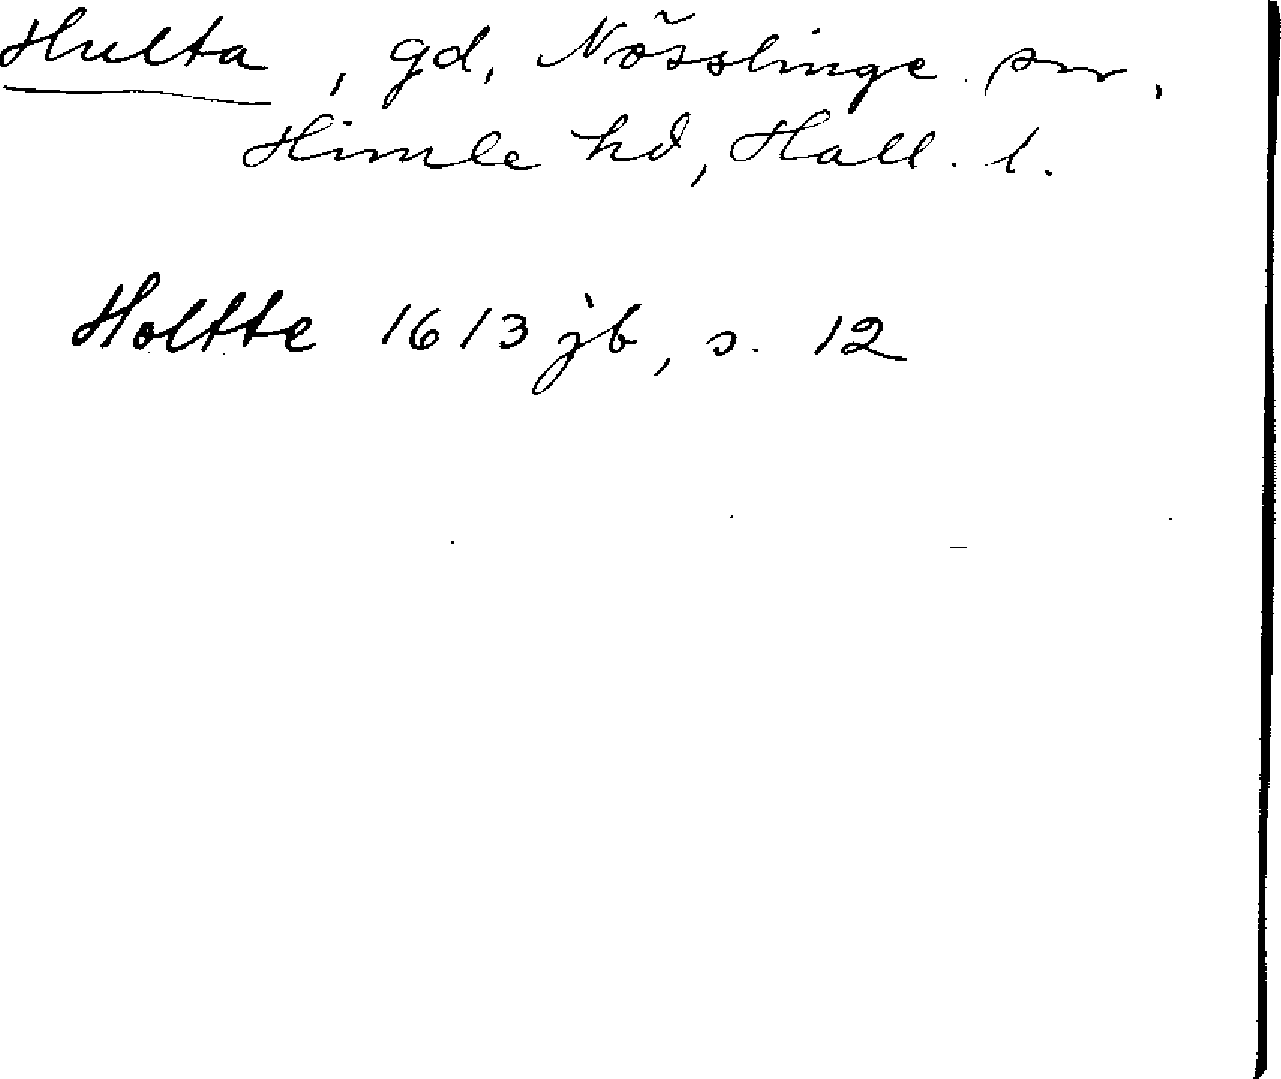 Hulta, gd, Nösslinge sn,
Himle hd, Hall. l.
Holtte 1613 jb, s. 12